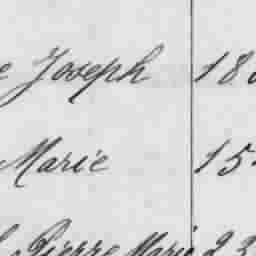 e Joseph 18
Marie 15
Pierre Marie 23